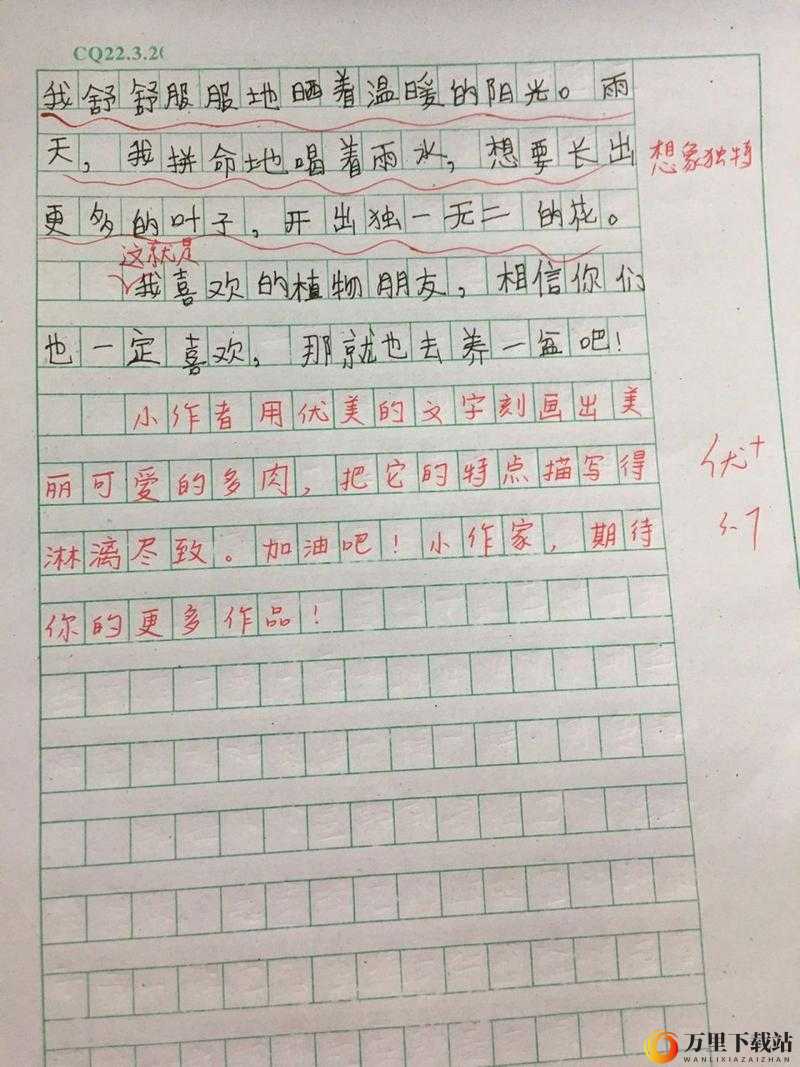 CQ22.3.20
我舒舒服服地晒着温暖的阳光。雨
天，我拼命地喝着雨水，想要长出
想象独特
更多的叶子，开出独一无二的花。
这就是
我喜欢的植物朋友，相信你们
也一定喜欢，那就也去养一盆吧！
小作者用优美的文字刻画出美
丽可爱的多肉，把它的特点描写得
优+
淋漓尽致。加油吧！小作家，期待
你的更多作品！
万里下载站
WANLIXIAZAIZHAN